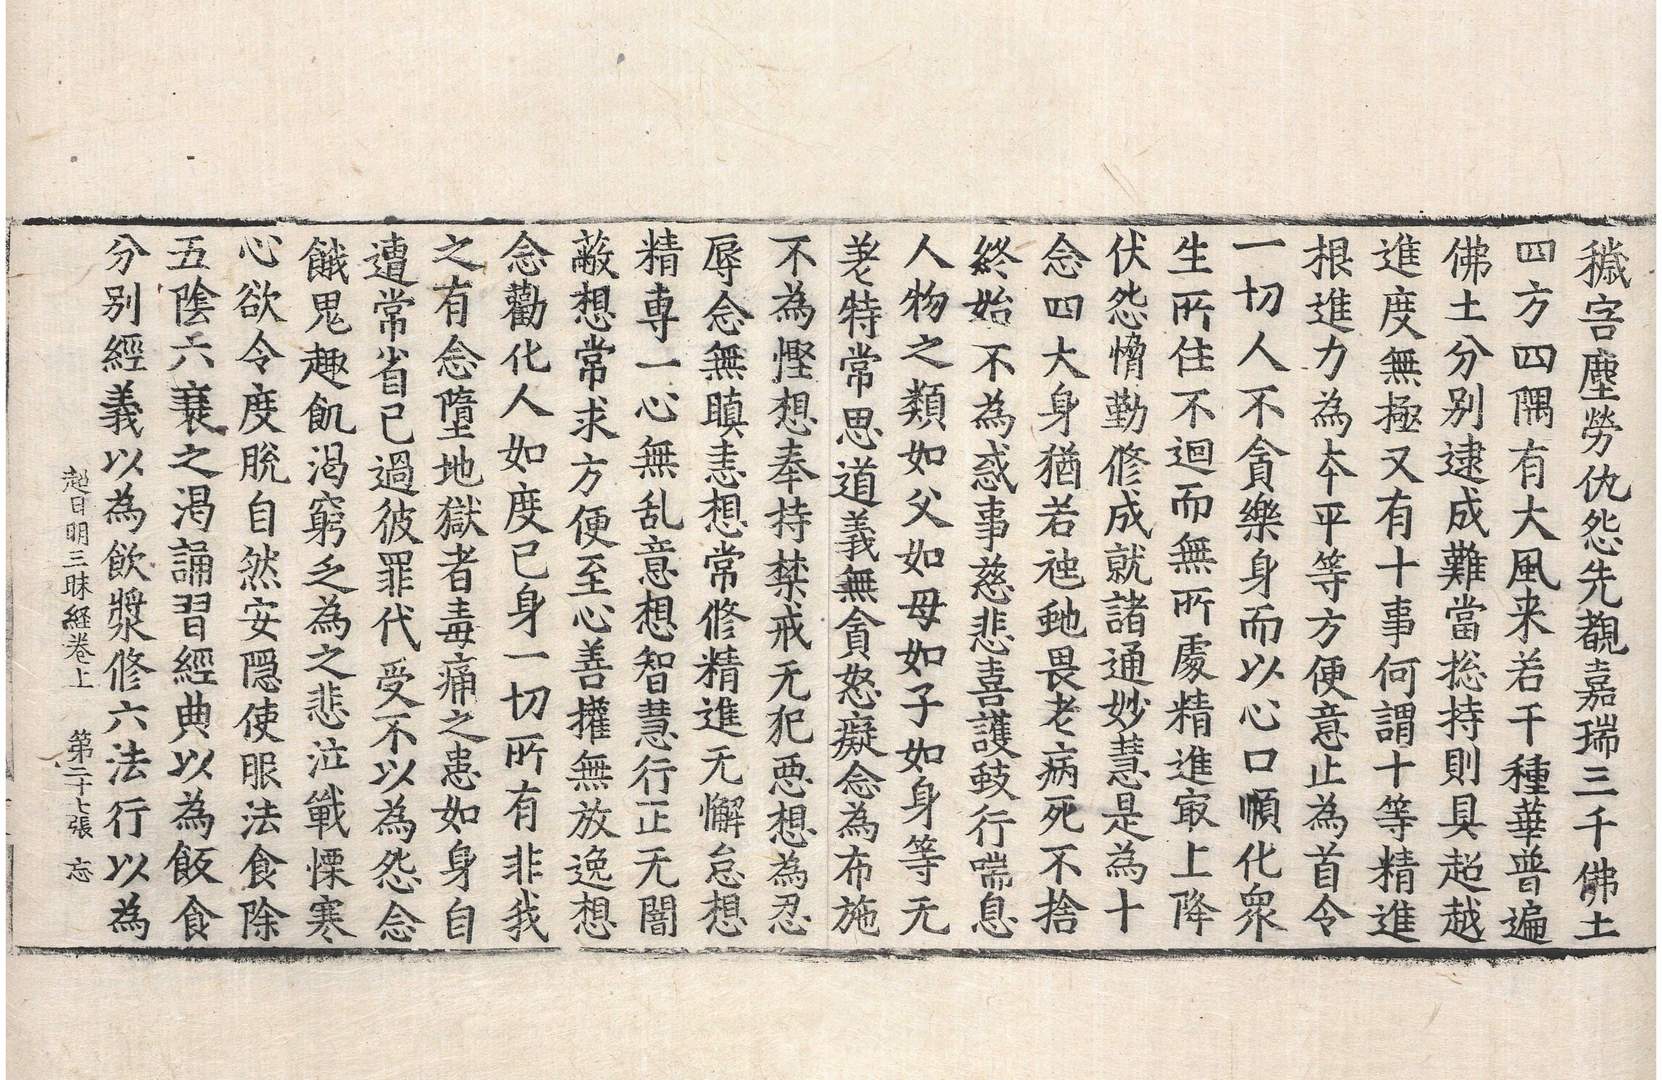 穢害塵勞仇怨先覩嘉瑞三千佛土
四方四隅有大風来若干種華普遍
佛土分別逮成難當捴持則具超越
進度無極又有十事何謂十等精進
根進力為夲平等方便意止為首令
一切人不貪樂身而以心口順化衆
生所住不迴而無所處精進㝡上降
伏怨憜勤修成就諸通妙慧是為十
念四大身猶若虵虺畏老病死不捨
終始不為惑事慈悲喜護蚑行喘息
人物之類如父如母如子如身等无
差特常思道義無貪怒癡念為布施
不為慳想奉持禁戒无犯惡想為忍
辱念無瞋恚想常修精進无懈怠想
精專一心無乱意想智慧行正无闇
蔽想常求方便至心善權無放逸想
念勸化人如度己身一切所有非我
之有念墮地獄者毒痛之患如身自
遭常省己過彼罪代受不以為怨念
餓鬼趣飢渴窮乏為之悲泣戰慄寒
心欲令度脫自然安隠使服法食除
五陰六衰之渴誦習經典以為飯食
分別經義以為飲漿修六法行以為
超日明三昧経卷上　第二十七張　忘